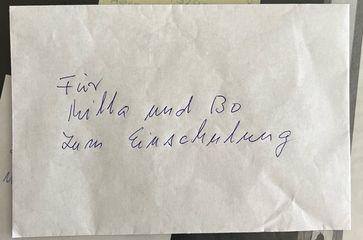 Für
Milla und Bo
zum Einschulung